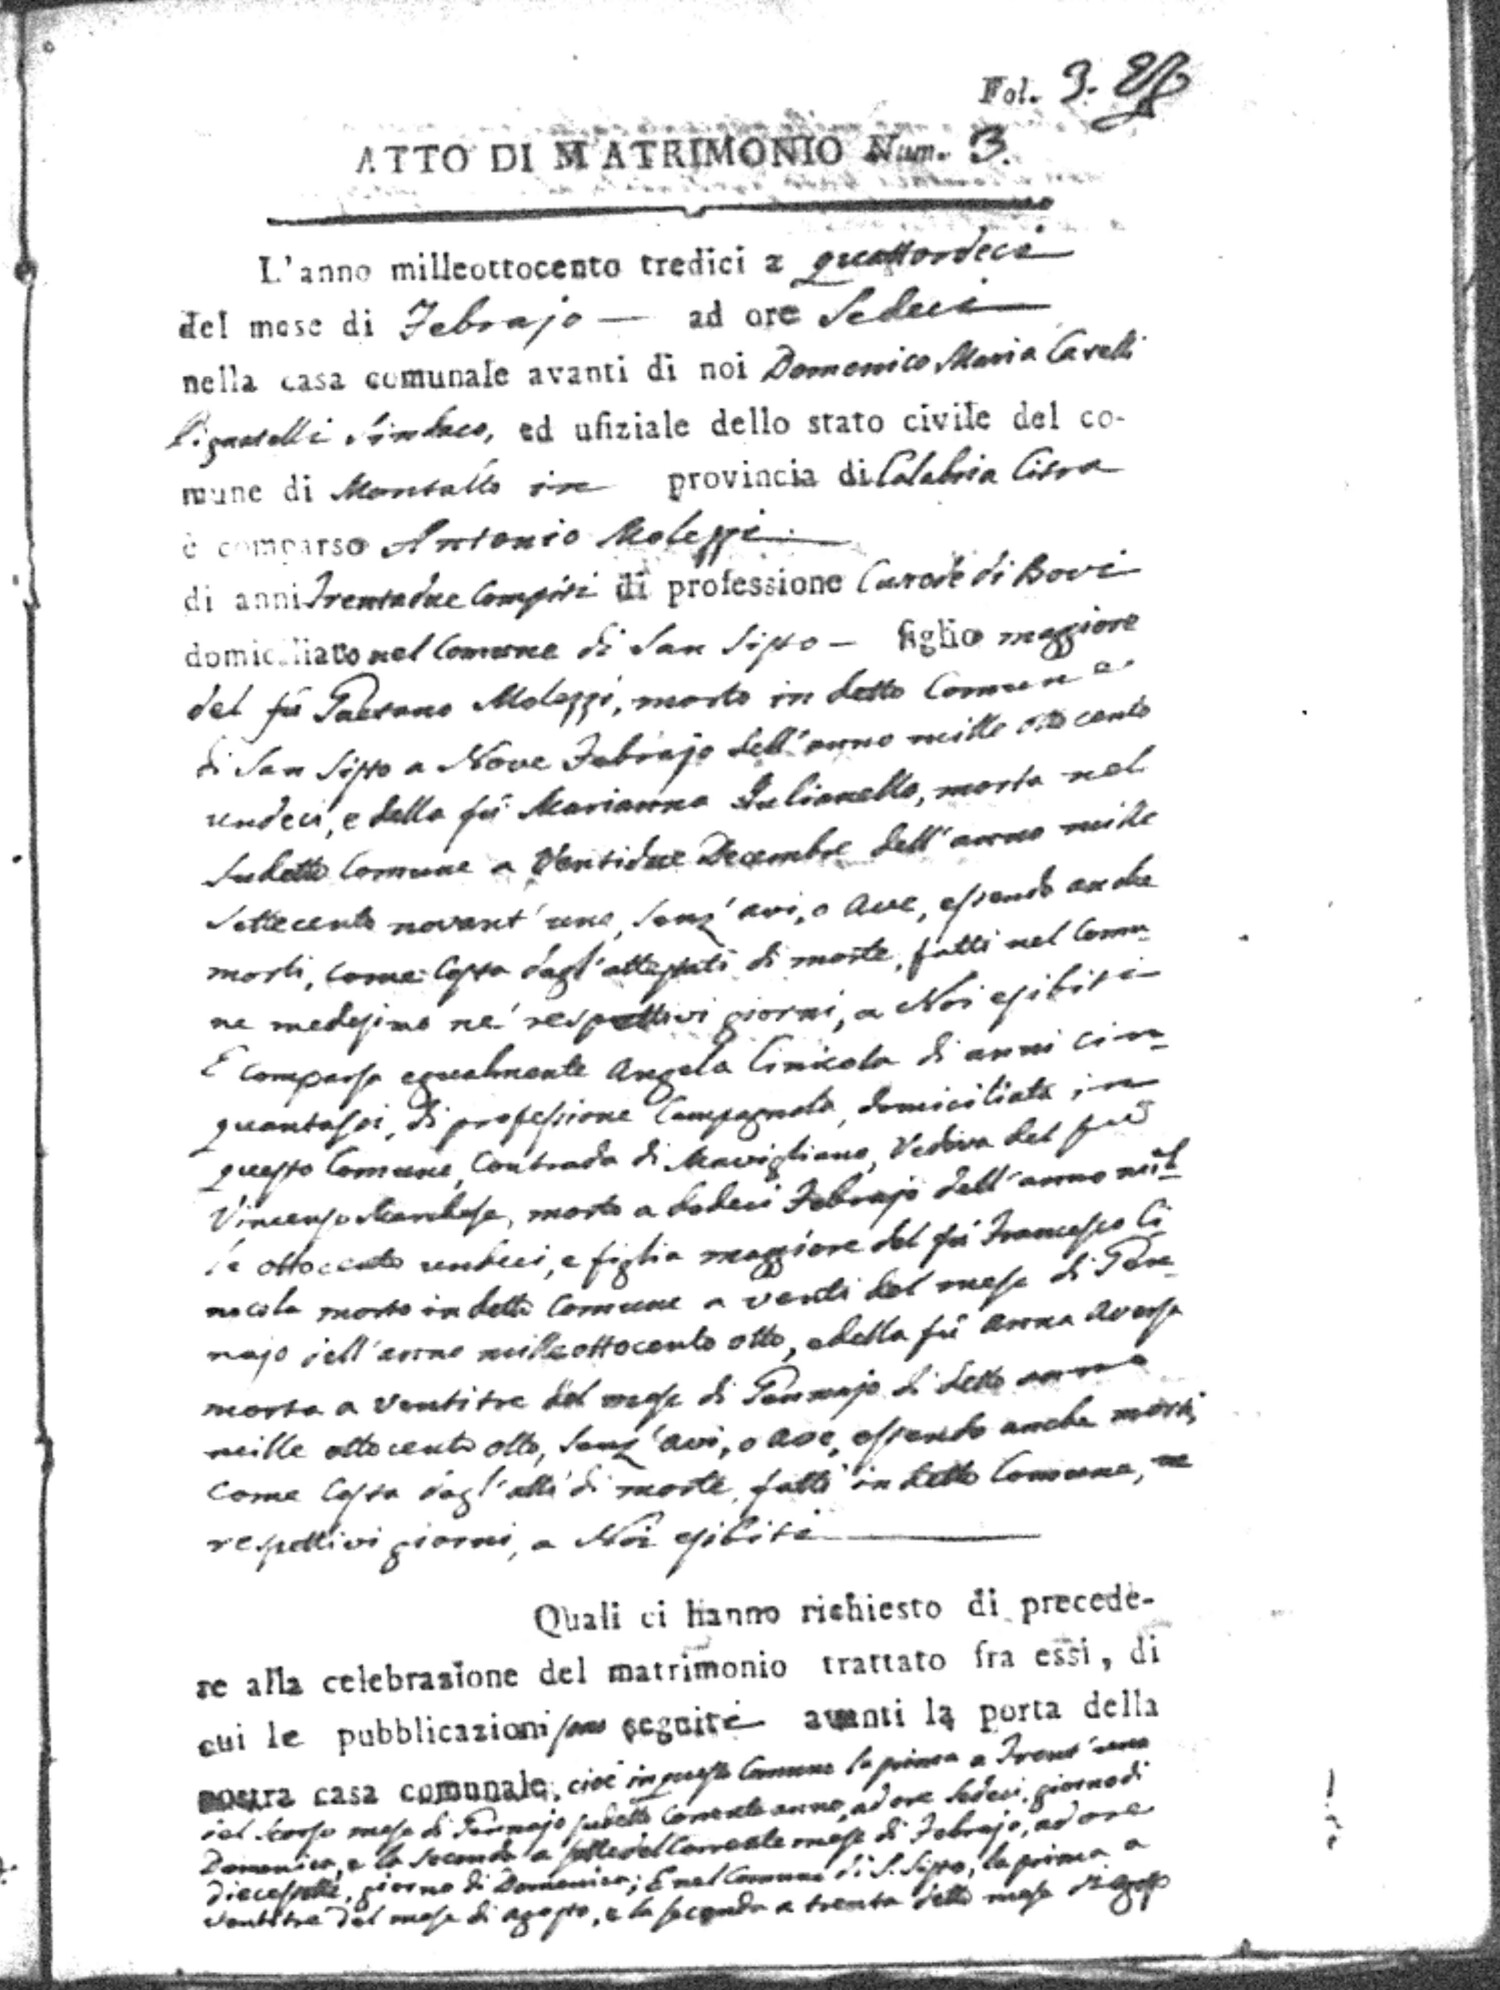 Fol. 3.
ATTO DI MATRIMONIO Num. 3.
L'anno milleottocento tredici a quattordeci
del mese di Febrajo — ad ore Sedeci
nella casa comunale avanti di noi Domenico Maria Caselli
Pignatelli Sindaco, ed ufiziale dello stato civile del co-
mune di Montalto in provincia di Calabria Citra
è comparso Antonio Molezzi
di anni Trentadue Compiti di professione Custode di Bovi
domiciliato nel Comune di San Sisto — figlio maggiore
del fù Gaetano Molezzi, morto in detto Comune
di San Sisto a Nove Febrajo dell'anno mille otto cento
undeci, e della fù Marianna Julianello, morta nel
sudetto Comune a Ventidue Decembre dell'anno mille
settecento novant'uno, senz'avi, o Ave, essendo anche
morti, come Costa dagl'attestati di morte, fatti nel Comu-
ne medesimo ne' respettivi giorni, a Noi esibiti
E comparsa egualmente Angela Cinicola di anni cin-
quantasei, di professione Campagnola, domiciliata in
questo Comune, Contrada di Mavigliano, Vedova del fù
Vincenzo Marchese, morto a dodeci Febrajo dell'anno mil-
le ottocento undeci, e figlia maggiore del fù Francesco Ci
nicola morto in detto Comune a venti del mese di Gen-
najo dell'anno mille ottocento otto, e della fù Anna Aversa
morta a ventitre del mese di Gennajo di detto anno
mille ottocento otto, senz'Avi, o Ave, essendo anche morti,
come Costa dagl'atti di morte, fatti in detto Comune, ne
respettivi giorni, a Noi esibiti
Quali ci hanno richiesto di precede-
re alla celebrazione del matrimonio trattato fra essi, di
cui le pubblicazioni sono seguite avanti la porta della
nostra casa comunale, cioè in questo Comune la prima a Trent'uno
del scorso mese di Gennajo sudetto corrente anno, ad ore Sedeci, giorno di
Domenica, e la seconda a sette del Corrente mese di Febrajo, ad ore
diecessette, giorno di Domenica; E nel Comune di S. Sisto, la prima a
ventitre del mese di agosto, e la seconda a trenta detto mese di agosto